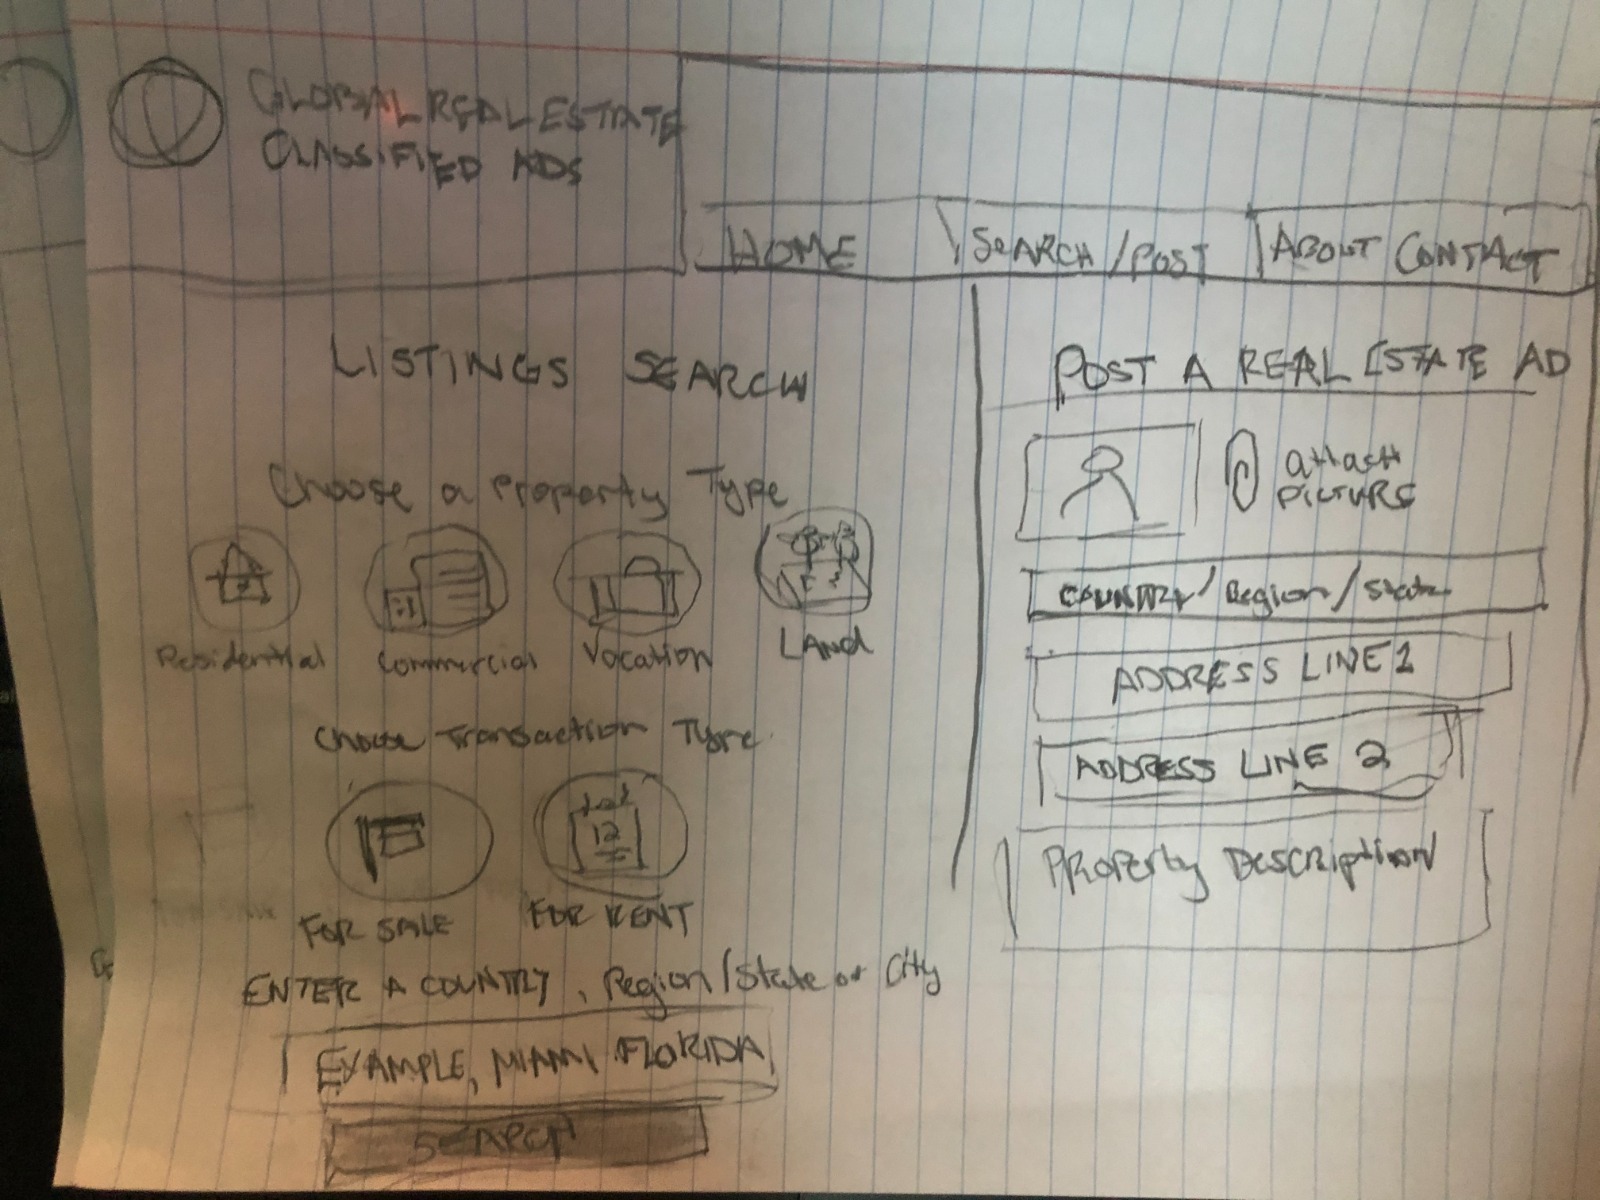 GLOBAL REAL ESTATE
CLASSIFIED ADS
HOME
SEARCH/POST
ABOUT CONTACT
LISTINGS SEARCH
Choose a Property Type
Residential
Commercial
Vocation
LAND
Choose Transaction Type
12
FOR SALE
FOR RENT
ENTER A COUNTRY, Region/State or City
EXAMPLE, MIAMI FLORIDA
SEARCH
POST A REAL ESTATE AD
attach
PICTURE
COUNTRY/Region/State
ADDRESS LINE 1
ADDRESS LINE 2
Property Description